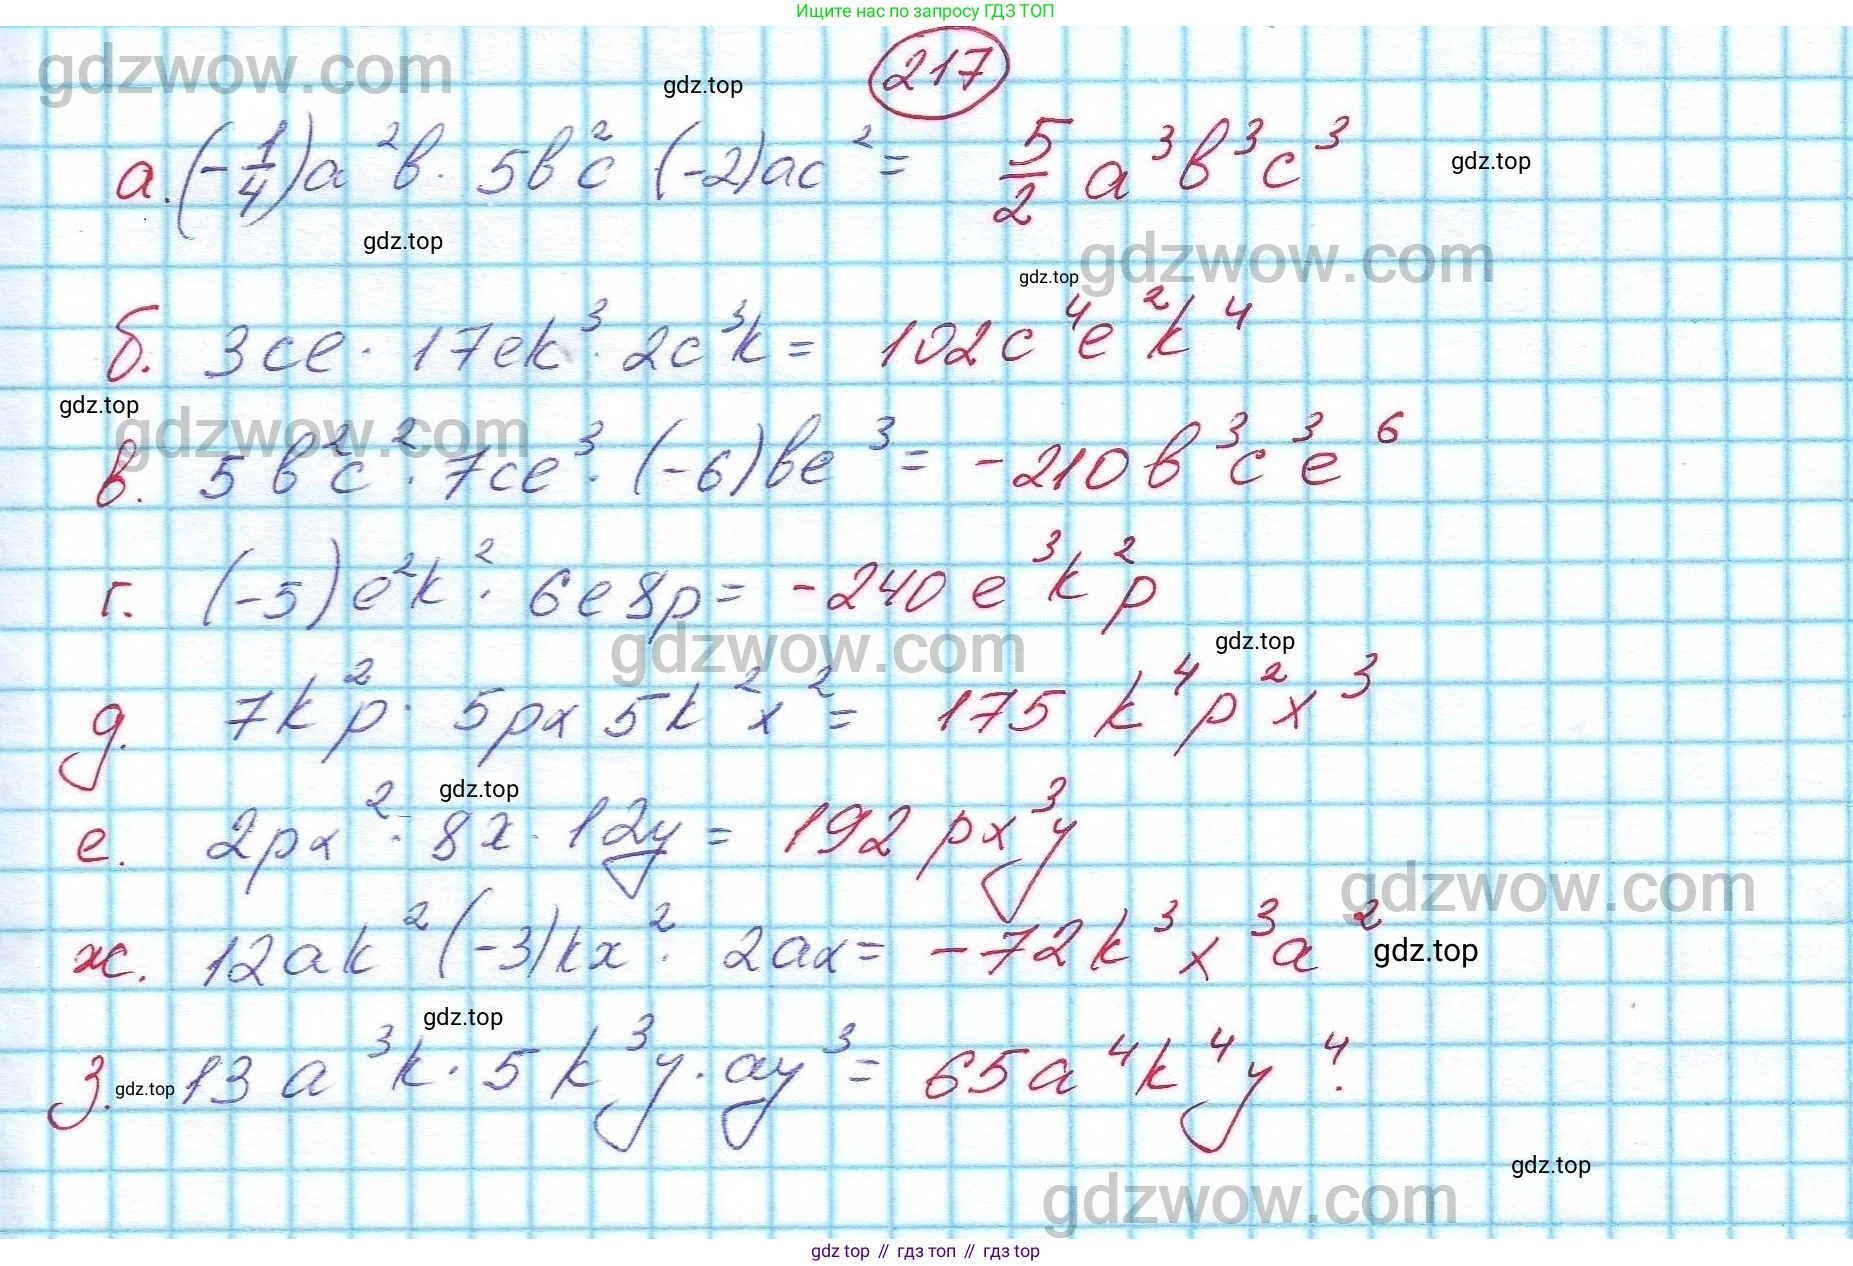 Ищите нас по запросу ГДЗ ТОП
gdzwow.com
gdz.top
217
а. (-1/4)a²b · 5b²c (-2)ac² = 5/2 a³b³c³
gdz.top
gdz.top
gdzwow.com
gdz.top
б. 3ce · 17ek³ · 2c³k = 102c⁴e²k⁴
gdz.top
gdzwow.com
в. 5b²c² · 7ce³ · (-6)be³ = -210b³c³e⁶
г. (-5)e²k² · 6e8p = -240e³k²p
gdzwow.com
gdz.top
д. 7k²p · 5px 5k²x² = 175k⁴p²x³
gdz.top
е. 2px² · 8x · 12y = 192px³y
gdzwow.com
ж. 12ak² (-3)kx² · 2ax = -72k³x³a²
gdz.top
gdz.top
з. 13a³k · 5k³y · ay³ = 65a⁴k⁴y⁴.
gdz.top
gdz.top
gdzwow.com
gdz top // гдз топ // гдз top